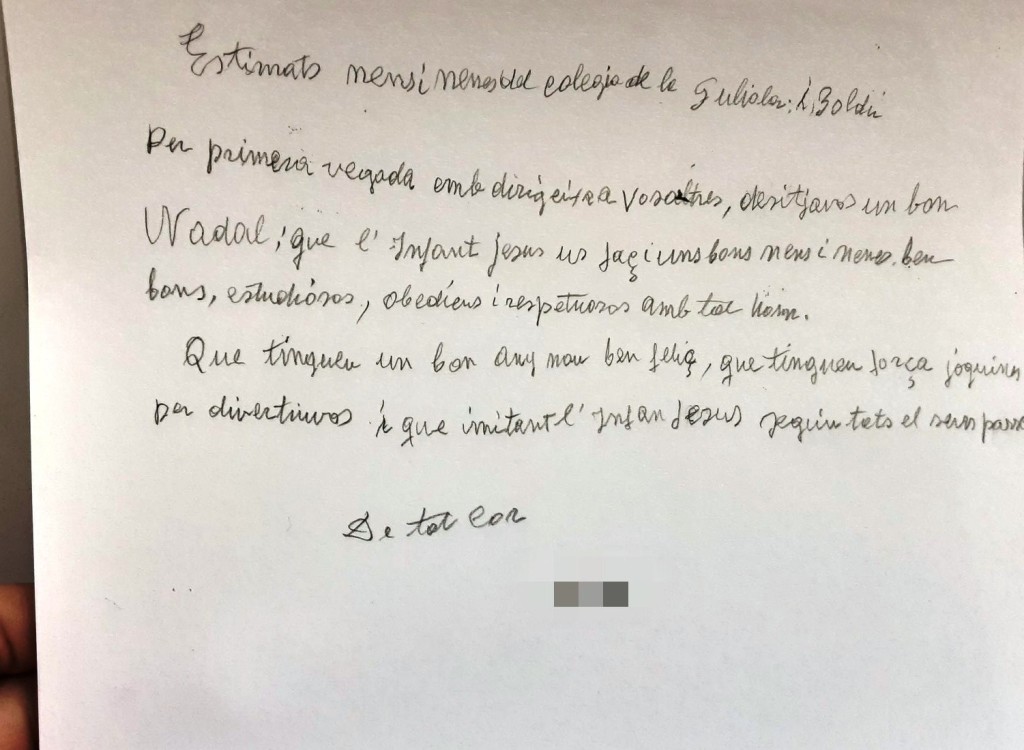 Estimats nens i nenes del colegio de la Guliola, i, Boldú
Per primera vegada emb dirigeixo a vosaltres, desitjavos un bon
Nadal, i que l' Infant Jesus us façi uns bons nens i nenes. ben
bons, estudiosos, obediens i respetuosos amb tot hom.
Que tingueu un bon any nou ben feliç, que tingueu força joguines
per divertiuvos i que imitant l' Infan Jesus seguiu tots el seus
De tot cor